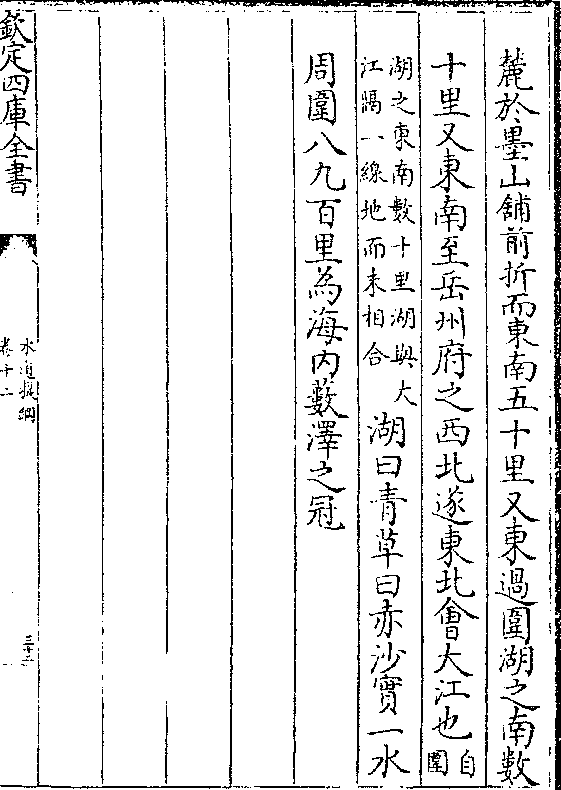 麓於墨山舖前折而東南五十里又東過圍湖之南數
十里又東南至岳州府之西北遂東北會大江也自圍
湖之東南數十里湖與大江隔一線地而未相合湖曰青草曰赤沙實一水
周圍八九百里為海内藪澤之冠
欽定四庫全書
水道提綱
卷十二
三十二